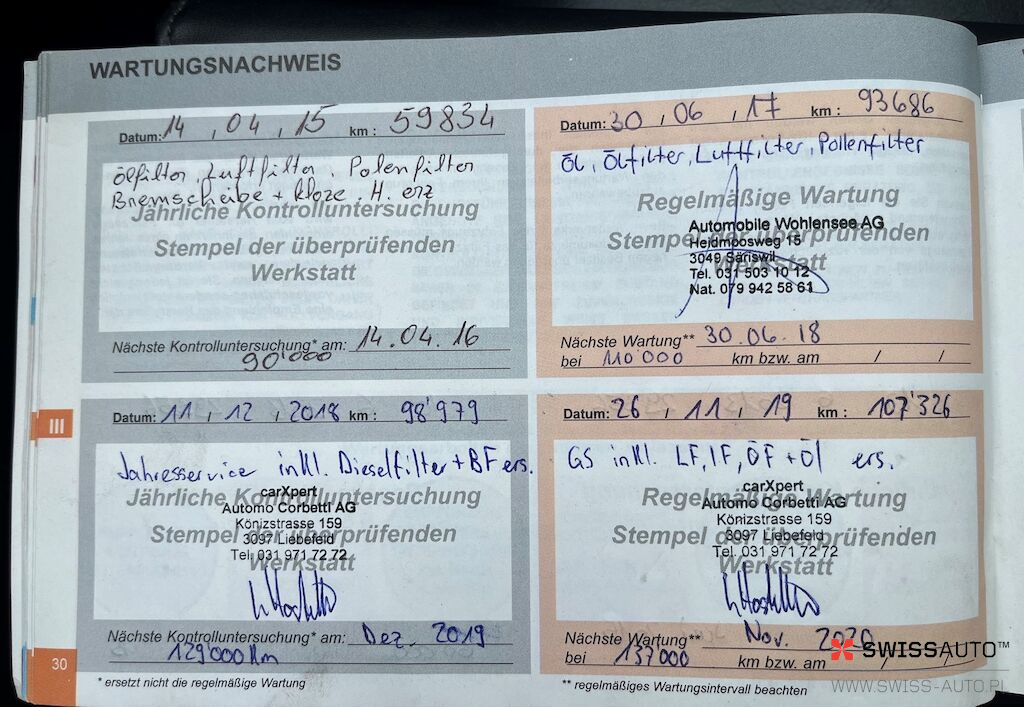 WARTUNGSNACHWEIS
Datum: 14 , 04 , 15 km : 59834
Ölfilter, Luftfilter, Polenfilter
Bremscheibe + kloze. H. erz
Jährliche Kontrolluntersuchung
Stempel der überprüfenden
Werkstatt
Nächste Kontrolluntersuchung* am: 14.04.16
90'000
Datum: 30 , 06 , 17 km : 93686
Öl, Ölfilter, Luftfilter, Pollenfilter
Regelmäßige Wartung
Stempel der überprüfenden
Werkstatt
Automobile Wohlensee AG
Heidmoosweg 15
3049 Säriswil
Tel. 031 503 10 12
Nat. 079 942 58 61
Nächste Wartung** 30.06.18
bei 110'000 km bzw. am / /
Datum: 11 , 12 , 2018 km : 98'979
Jahresservice inkl. Dieselfilter + BF ers.
Jährliche Kontrolluntersuchung
Stempel der überprüfenden
Werkstatt
carXpert
Automo Corbetti AG
Könizstrasse 159
3097 Liebefeld
Tel. 031 971 72 72
Nächste Kontrolluntersuchung* am: Dez. 2019
129'000 Km
Datum: 26 , 11 , 19 km : 107'326
GS inkl. LF, IF, ÖF + Öl ers.
Regelmäßige Wartung
Stempel der überprüfenden
Werkstatt
carXpert
Automo Corbetti AG
Könizstrasse 159
3097 Liebefeld
Tel. 031 971 72 72
Nächste Wartung** Nov. 2020
bei 137'000 km bzw. am / /
III
30
* ersetzt nicht die regelmäßige Wartung
** regelmäßiges Wartungsintervall beachten
SWISSAUTO™
WWW.SWISS-AUTO.PL